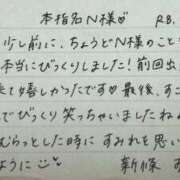 本指名N様♡ R.B.
少し前に、ちょうどN様のこと
本当にびっくりしました!前回出
来て嬉しかったです♡最後、すこ
でびっくり笑っちゃいましたね
むらっとした時に すみれを思い
ように 新條 す